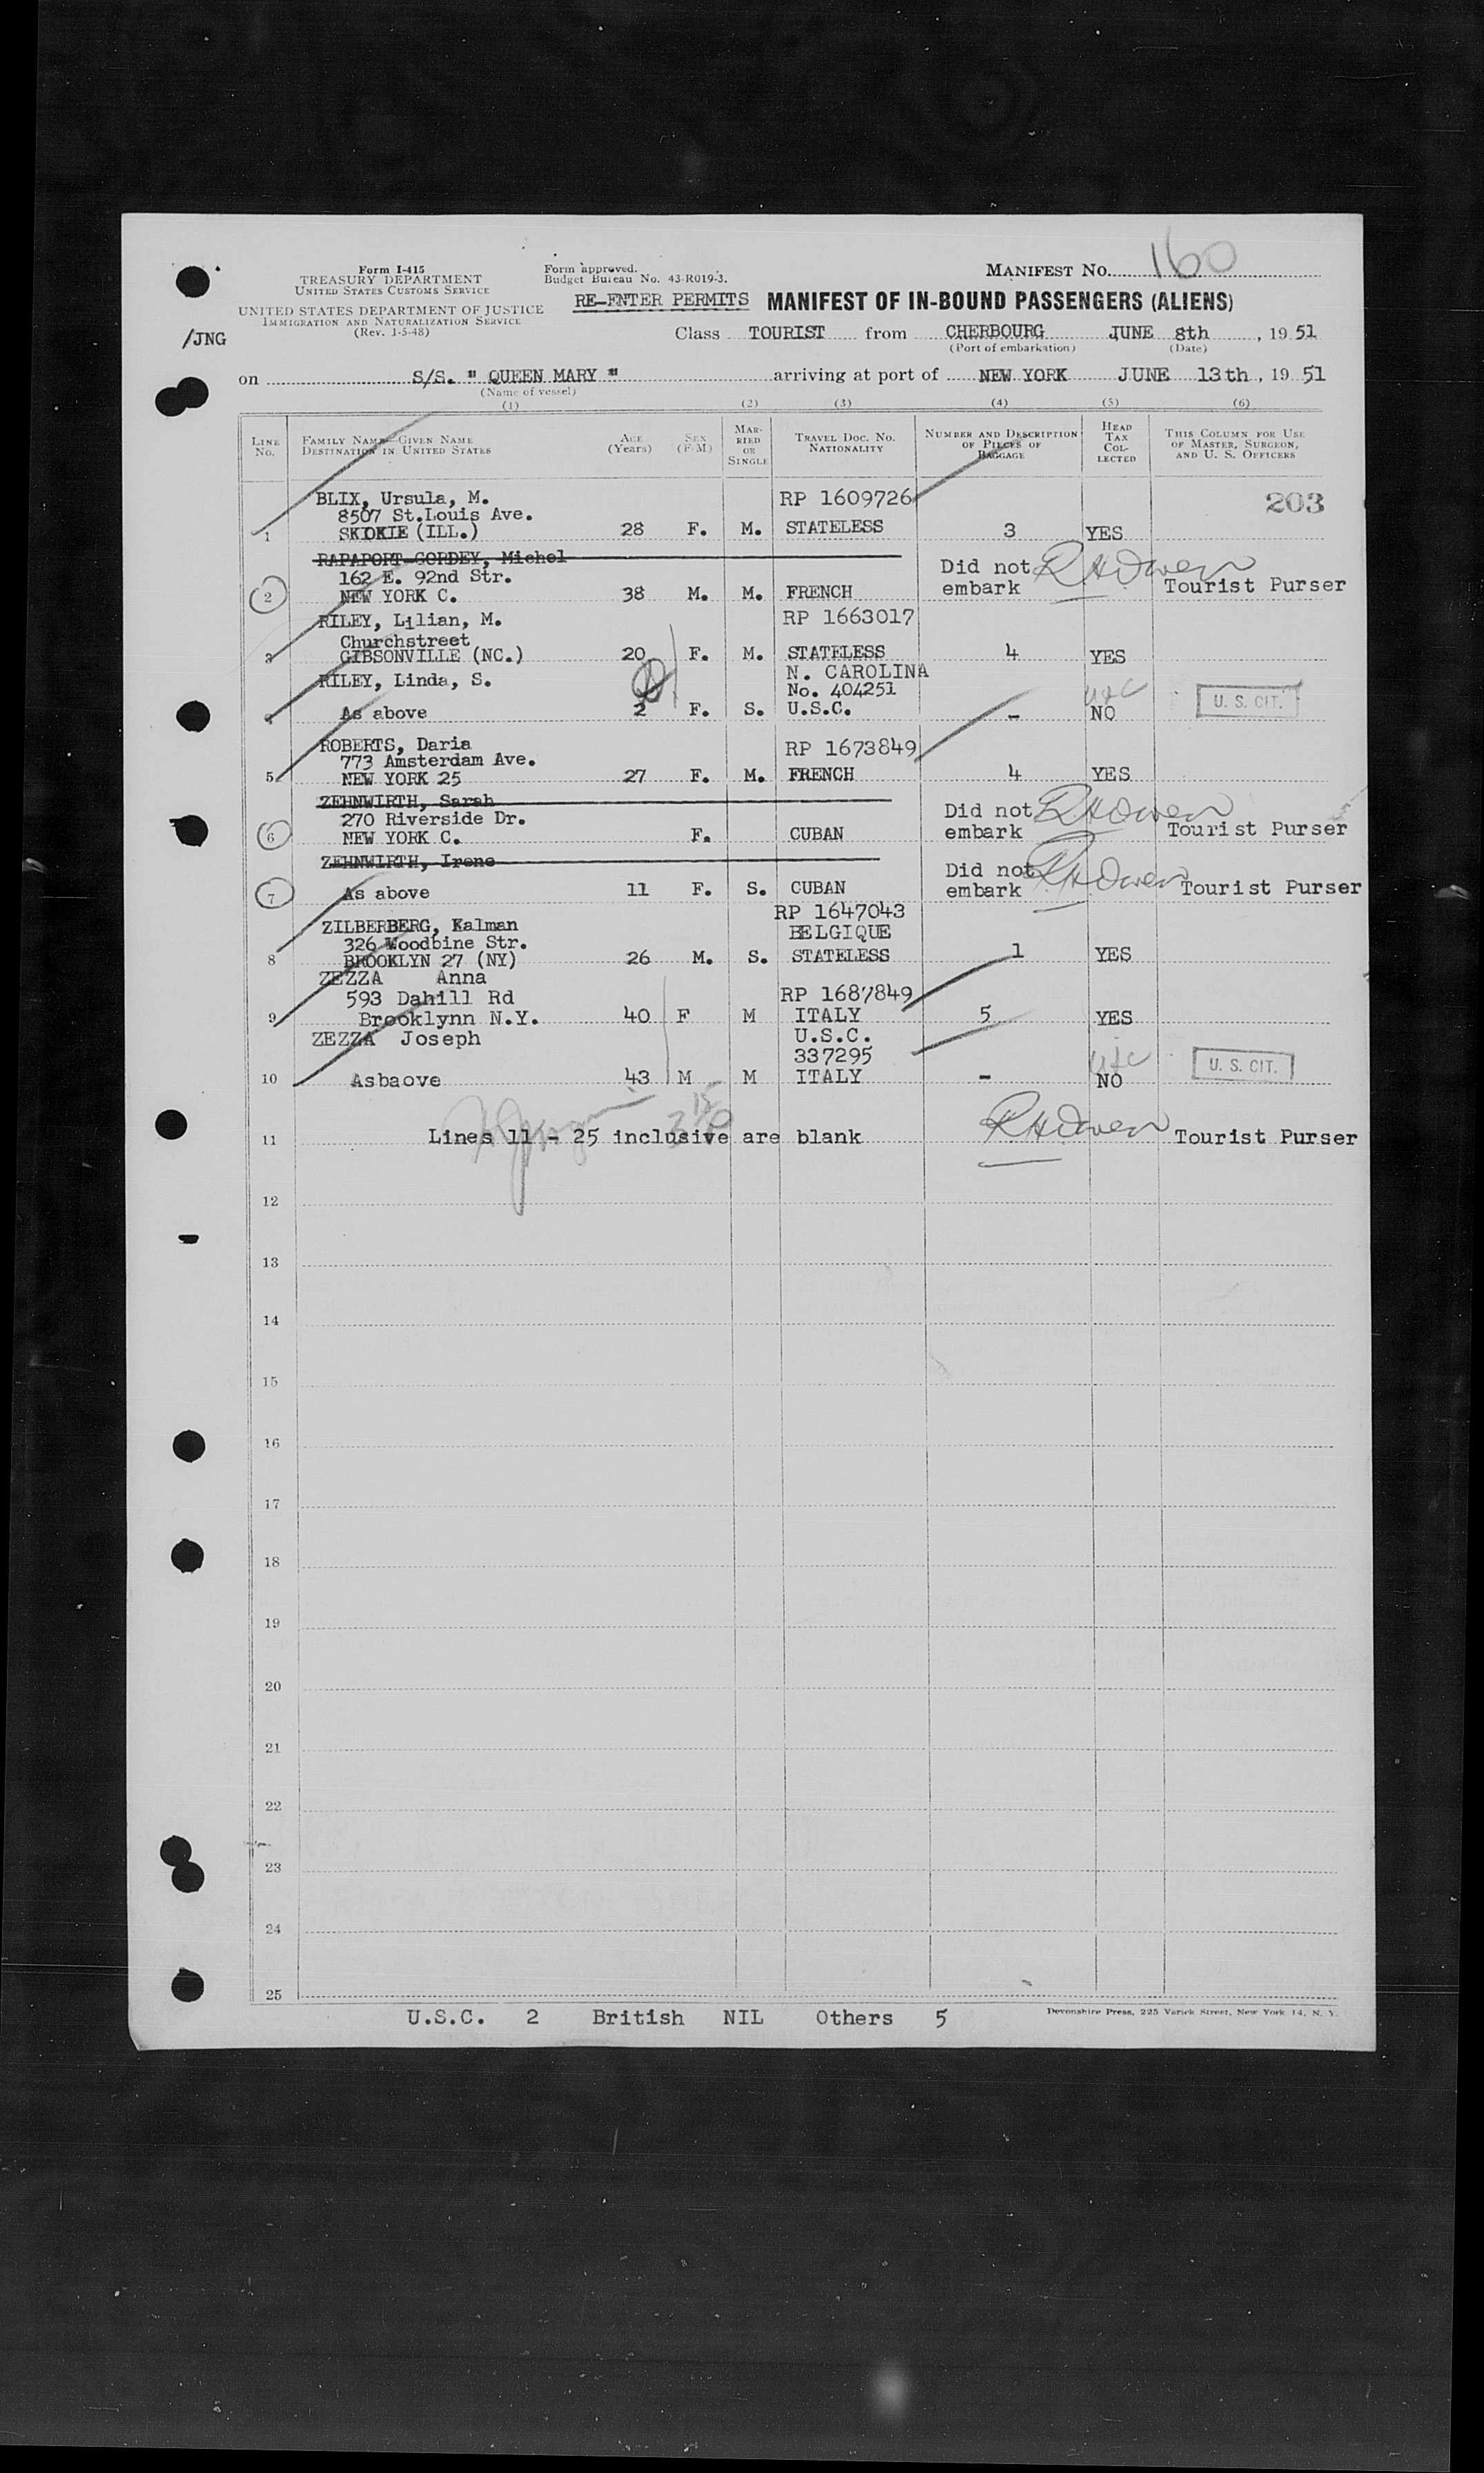 Form I-415
TREASURY DEPARTMENT
UNITED STATES CUSTOMS SERVICE
UNITED STATES DEPARTMENT OF JUSTICE
IMMIGRATION AND NATURALIZATION SERVICE
(Rev. 1-5-48)
/JNG
Form approved.
Budget Bureau No. 43-R019-3.
MANIFEST No. 160
RE-ENTER PERMITS MANIFEST OF IN-BOUND PASSENGERS (ALIENS)
Class TOURIST from CHERBOURG JUNE 8th, 19 51
(Port of embarkation) (Date)
on S/S. " QUEEN MARY " arriving at port of NEW YORK JUNE 13th, 19 51
(Name of vessel)
(1) (2) (3) (4) (5) (6)
LINE No.
FAMILY NAME—GIVEN NAME
DESTINATION IN UNITED STATES
AGE (Years)
SEX (F-M)
MARRIED OR SINGLE
TRAVEL DOC. NO.
NATIONALITY
NUMBER AND DESCRIPTION OF PIECES OF BAGGAGE
HEAD TAX COLLECTED
THIS COLUMN FOR USE OF MASTER, SURGEON, AND U. S. OFFICERS
BLIX, Ursula, M. RP 1609726 203
8507 St.Louis Ave.
1 SKOKIE (ILL.) 28 F. M. STATELESS 3 YES
RAPAPORT-CORDEY, Michel
162 E. 92nd Str. Did not RHOwen
2 NEW YORK C. 38 M. M. FRENCH embark Tourist Purser
RILEY, Lilian, M. RP 1663017
Churchstreet
3 GIBSONVILLE (NC.) 20 F. M. STATELESS 4 YES
RILEY, Linda, S. N. CAROLINA
No. 404251
4 As above 2 F. S. U.S.C. - NO U. S. CIT.
ROBERTS, Daria RP 1673849
773 Amsterdam Ave.
5 NEW YORK 25 27 F. M. FRENCH 4 YES
ZEHNWIRTH, Sarah
270 Riverside Dr. Did not RHOwen
6 NEW YORK C. F. CUBAN embark Tourist Purser
ZEHNWIRTH, Irene Did not RHOwen
7 As above 11 F. S. CUBAN embark Tourist Purser
ZILBERBERG, Kalman RP 1647043
326 Woodbine Str. BELGIQUE
8 BROOKLYN 27 (NY) 26 M. S. STATELESS 1 YES
ZEZZA Anna
593 Dahill Rd RP 1687849
9 Brooklynn N.Y. 40 F M ITALY 5 YES
ZEZZA Joseph U.S.C.
337295
10 Asbaove 43 M M ITALY - NO U. S. CIT.
11 Lines 11 - 25 inclusive are blank RHOwen Tourist Purser
12
13
14
15
16
17
18
19
20
21
22
23
24
25
U.S.C. 2 British NIL Others 5
Devonshire Press, 225 Varick Street, New York 14, N. Y.